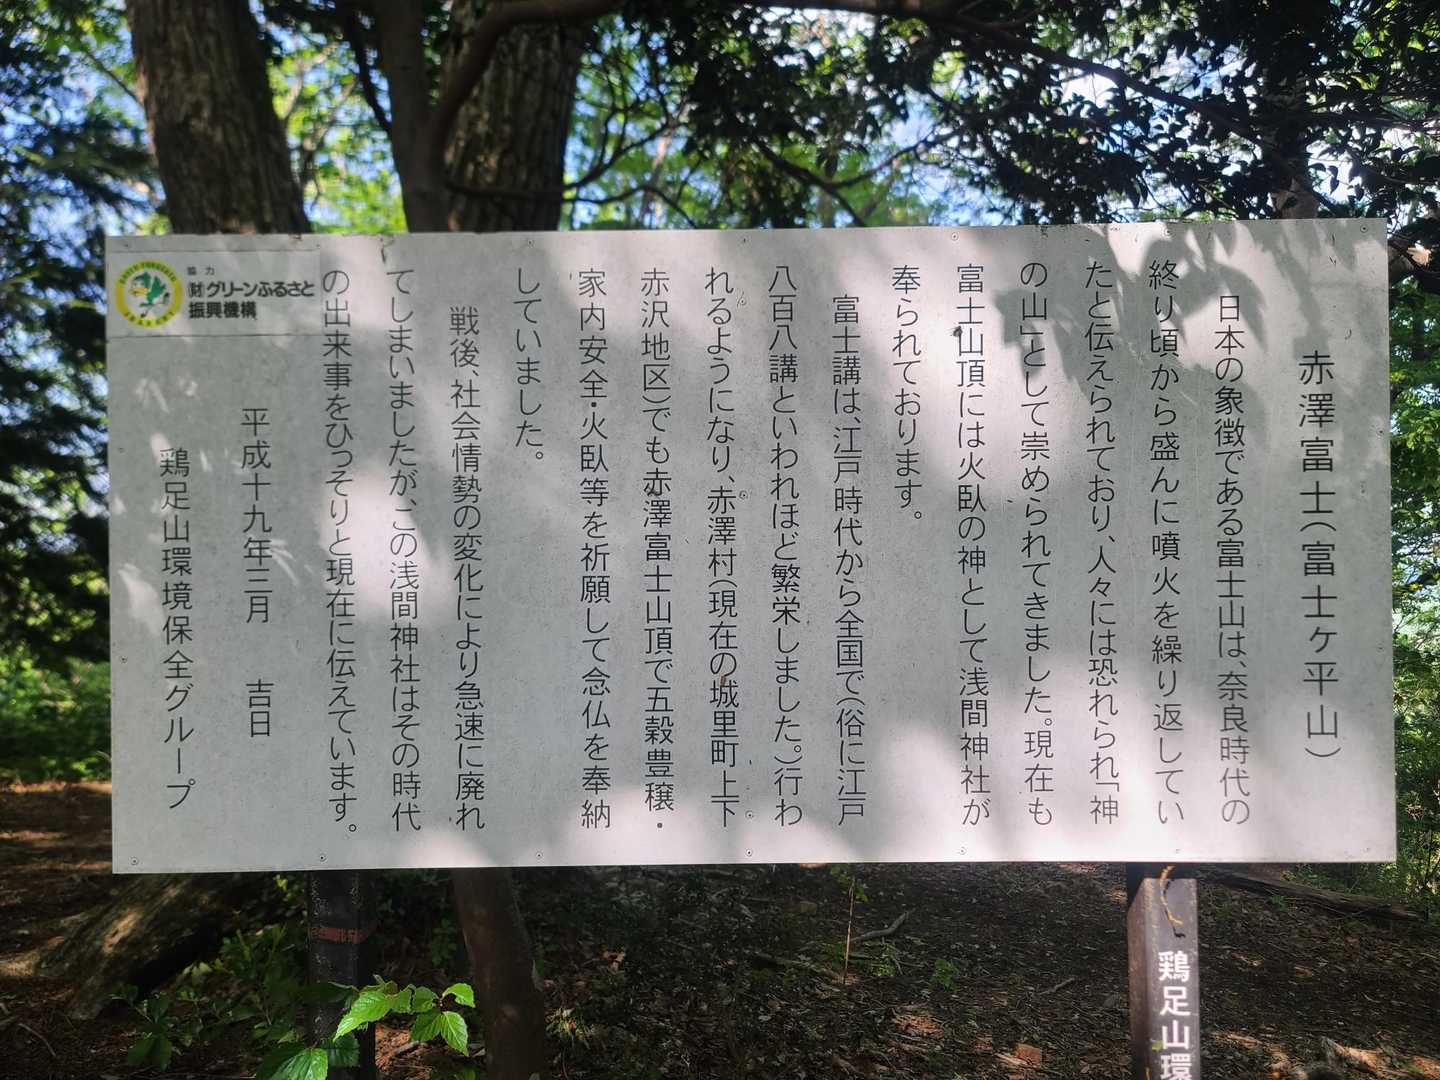 赤澤富士(富士ケ平山)
日本の象徴である富士山は、奈良時代の
終り頃から盛んに噴火を繰り返してい
たと伝えられており、人々には恐れられ「神
の山」として崇められてきました。現在も
富士山頂には火臥の神として浅間神社が
奉られております。
富士講は、江戸時代から全国で(俗に江戸
八百八講といわれほど繁栄しました。)行わ
れるようになり、赤澤村(現在の城里町上下
赤沢地区)でも赤澤富士山頂で五穀豊穣・
家内安全・火臥等を祈願して念仏を奉納
していました。
戦後、社会情勢の変化により急速に廃れ
てしまいましたが、この浅間神社はその時代
の出来事をひっそりと現在に伝えています。
平成十九年三月 吉日
鶏足山環境保全グループ
協力
(財)グリーンふるさと
振興機構
鶏足山環